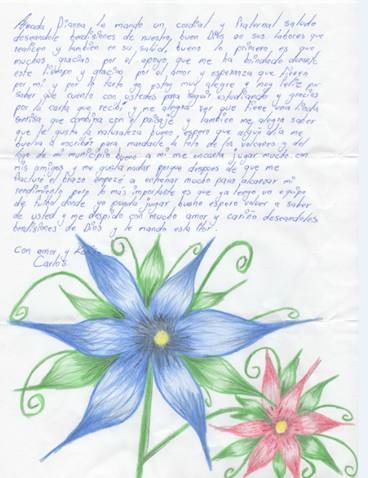 Amada Dianna le mando un cordial y fraternal saludo
deseandole bendiciones de nuestro buen Dios en sus labores que
realiza y tambien en su salud, bueno lo primero es que
muchas gracias por el apoyo que me ha brindado durante
este tiempo y gracias por el amor y esperanza que tienen
por mi y por lo tanto yo estoy muy alegre y muy feliz en
saber que cuento con ustedes para seguir estudiando y gracias
por la carta que recibi y me alegra ver que tiene una linda
sonrisa que combina con el paisaje y tambien me alegra saber
que le gusta la naturaleza bueno espero que algun día me
vuelva a escribir para mandarle la foto de los volcanes y del
lago de mi municipio bueno a mi me encanta jugar mucho con
mis amigos y me gusta nadar porque despues de que me
fracture el brazo empeze a entrenar mucho para alcanzar mi
rendimiento pero lo más importante es que ya tengo un equipo
de futbol donde yo puedo jugar, bueno espero volver a saber
de usted y me despido con mucho amor y cariño deseandoles
bendiciones de Dios y le mando esta flor.
con amor y
Carlos